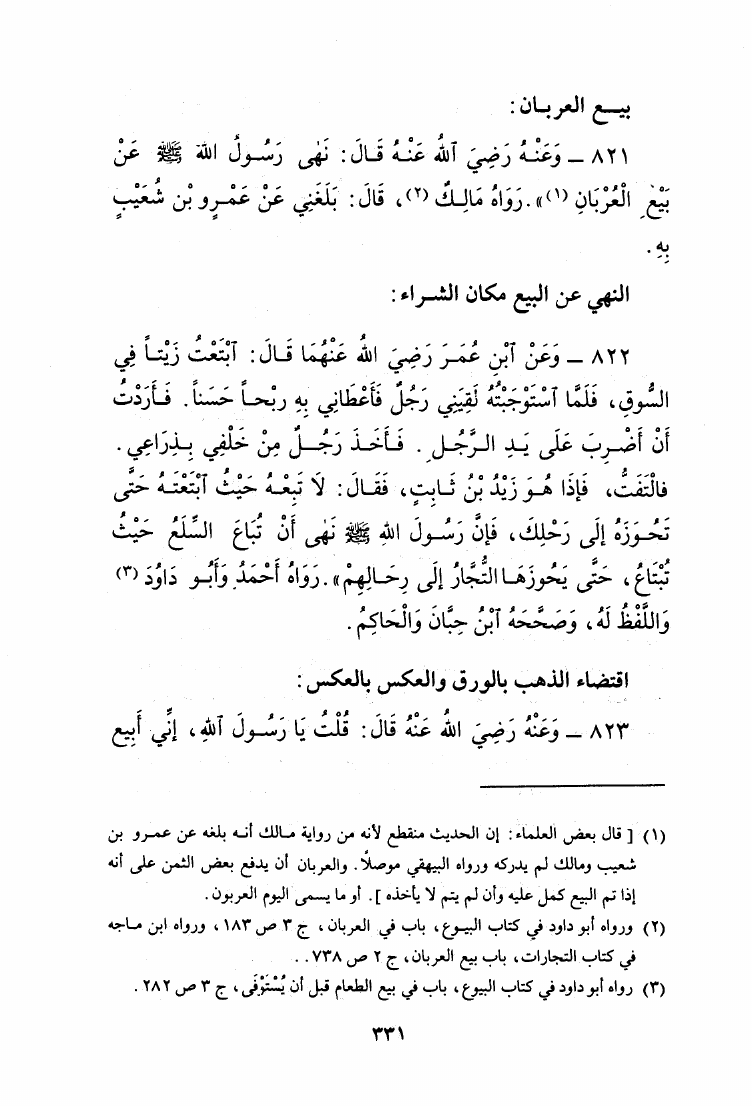 بيـع العربـان :
٨٢١ ـ وَعَنْـهُ رَضِيَ ٱللهُ عَنْـهُ قَـالَ : نَهٰى رَسُـولُ اللهَ ﷺ عَنْ
بَيْعِ الْعُرْبَانِ (١)» . رَوَاهُ مَالِـكٌ (٢) ، قَالَ : بَلَغَنِي عَنْ عَمْـرِو بْنِ شُعَيْبٍ
بِهِ .
النهي عن البيع مكان الشـراء :
٨٢٢ ـ وَعَنْ ٱبْنِ عُمَـرَ رَضِيَ اللهُ عَنْهُمَا قَـالَ : ٱبْتَعْتُ زَيْتـاً فِي
السُّوقِ ، فَلَمَّا ٱسْتَوْجَبْتُهُ لَقِيَنِي رَجُلٌ فَأَعْطَانِي بِهِ رِبْحـاً حَسَناً . فَـأَرَدْتُ
أَنْ أَضْـرِبَ عَلَى يَـدِ الـرَّجُـلِ . فَـأَخَـذَ رَجُـلٌ مِنْ خَلْفِي بِـذِرَاعِي .
فالْتَفَتُّ ، فَإِذَا هُـوَ زَيْدُ بْنُ ثَـابِتٍ ، فَقَـالَ : لَا تَبِعْـهُ حَيْثُ ٱبْتَعْتَـهُ حَتَّى
تَحُـوزَهُ إِلَى رَحْلِكَ ، فَإِنَّ رَسُـولَ اللهِ ﷺ نَهٰى أَنْ تُبَاعَ السِّلَعُ حَيْثُ
تُبْتَاعُ ، حَتَّى يَحُوزَهَـا التُّجَّارُ إِلَى رِحَـالِهِمْ» . رَوَاهُ أَحْمَدُ وَأَبُـو دَاوُدَ (٣)
وَاللَّفْظُ لَهُ ، وَصَحَّحَهُ ٱبْنُ حِبَّانَ وَالْحَاكِمُ .
اقتضاء الذهب بالورق والعكس بالعكس :
٨٢٣ ـ وَعَنْهُ رَضِيَ اللهُ عَنْهُ قَالَ : قُلْتُ يَا رَسُـولَ ٱللهِ ، إِنِّي أَبِيع
(١) [ قال بعض العلماء : إن الحديث منقطع لأنه من رواية مـالك أنـه بلغه عن عمـرو بن
شعيب ومالك لم يدركه ورواه البيهقي موصلًا . والعربان أن يدفع بعض الثمن على أنه
إذا تم البيع كمل عليه وأن لم يتم لا يأخذه ] . أو ما يسمى اليوم العربون .
(٢) ورواه أبو داود في كتاب البيـوع ، باب في العربان ، ج ٣ ص ١٨٣ ، ورواه ابن مـاجه
في كتاب التجارات ، باب بيع العربان ، ج ٢ ص ٧٣٨ . .
(٣) رواه أبو داود في كتاب البيوع ، باب في بيع الطعام قبل أن يُسْتَوْفَى ، ج ٣ ص ٢٨٢ .
٣٣١